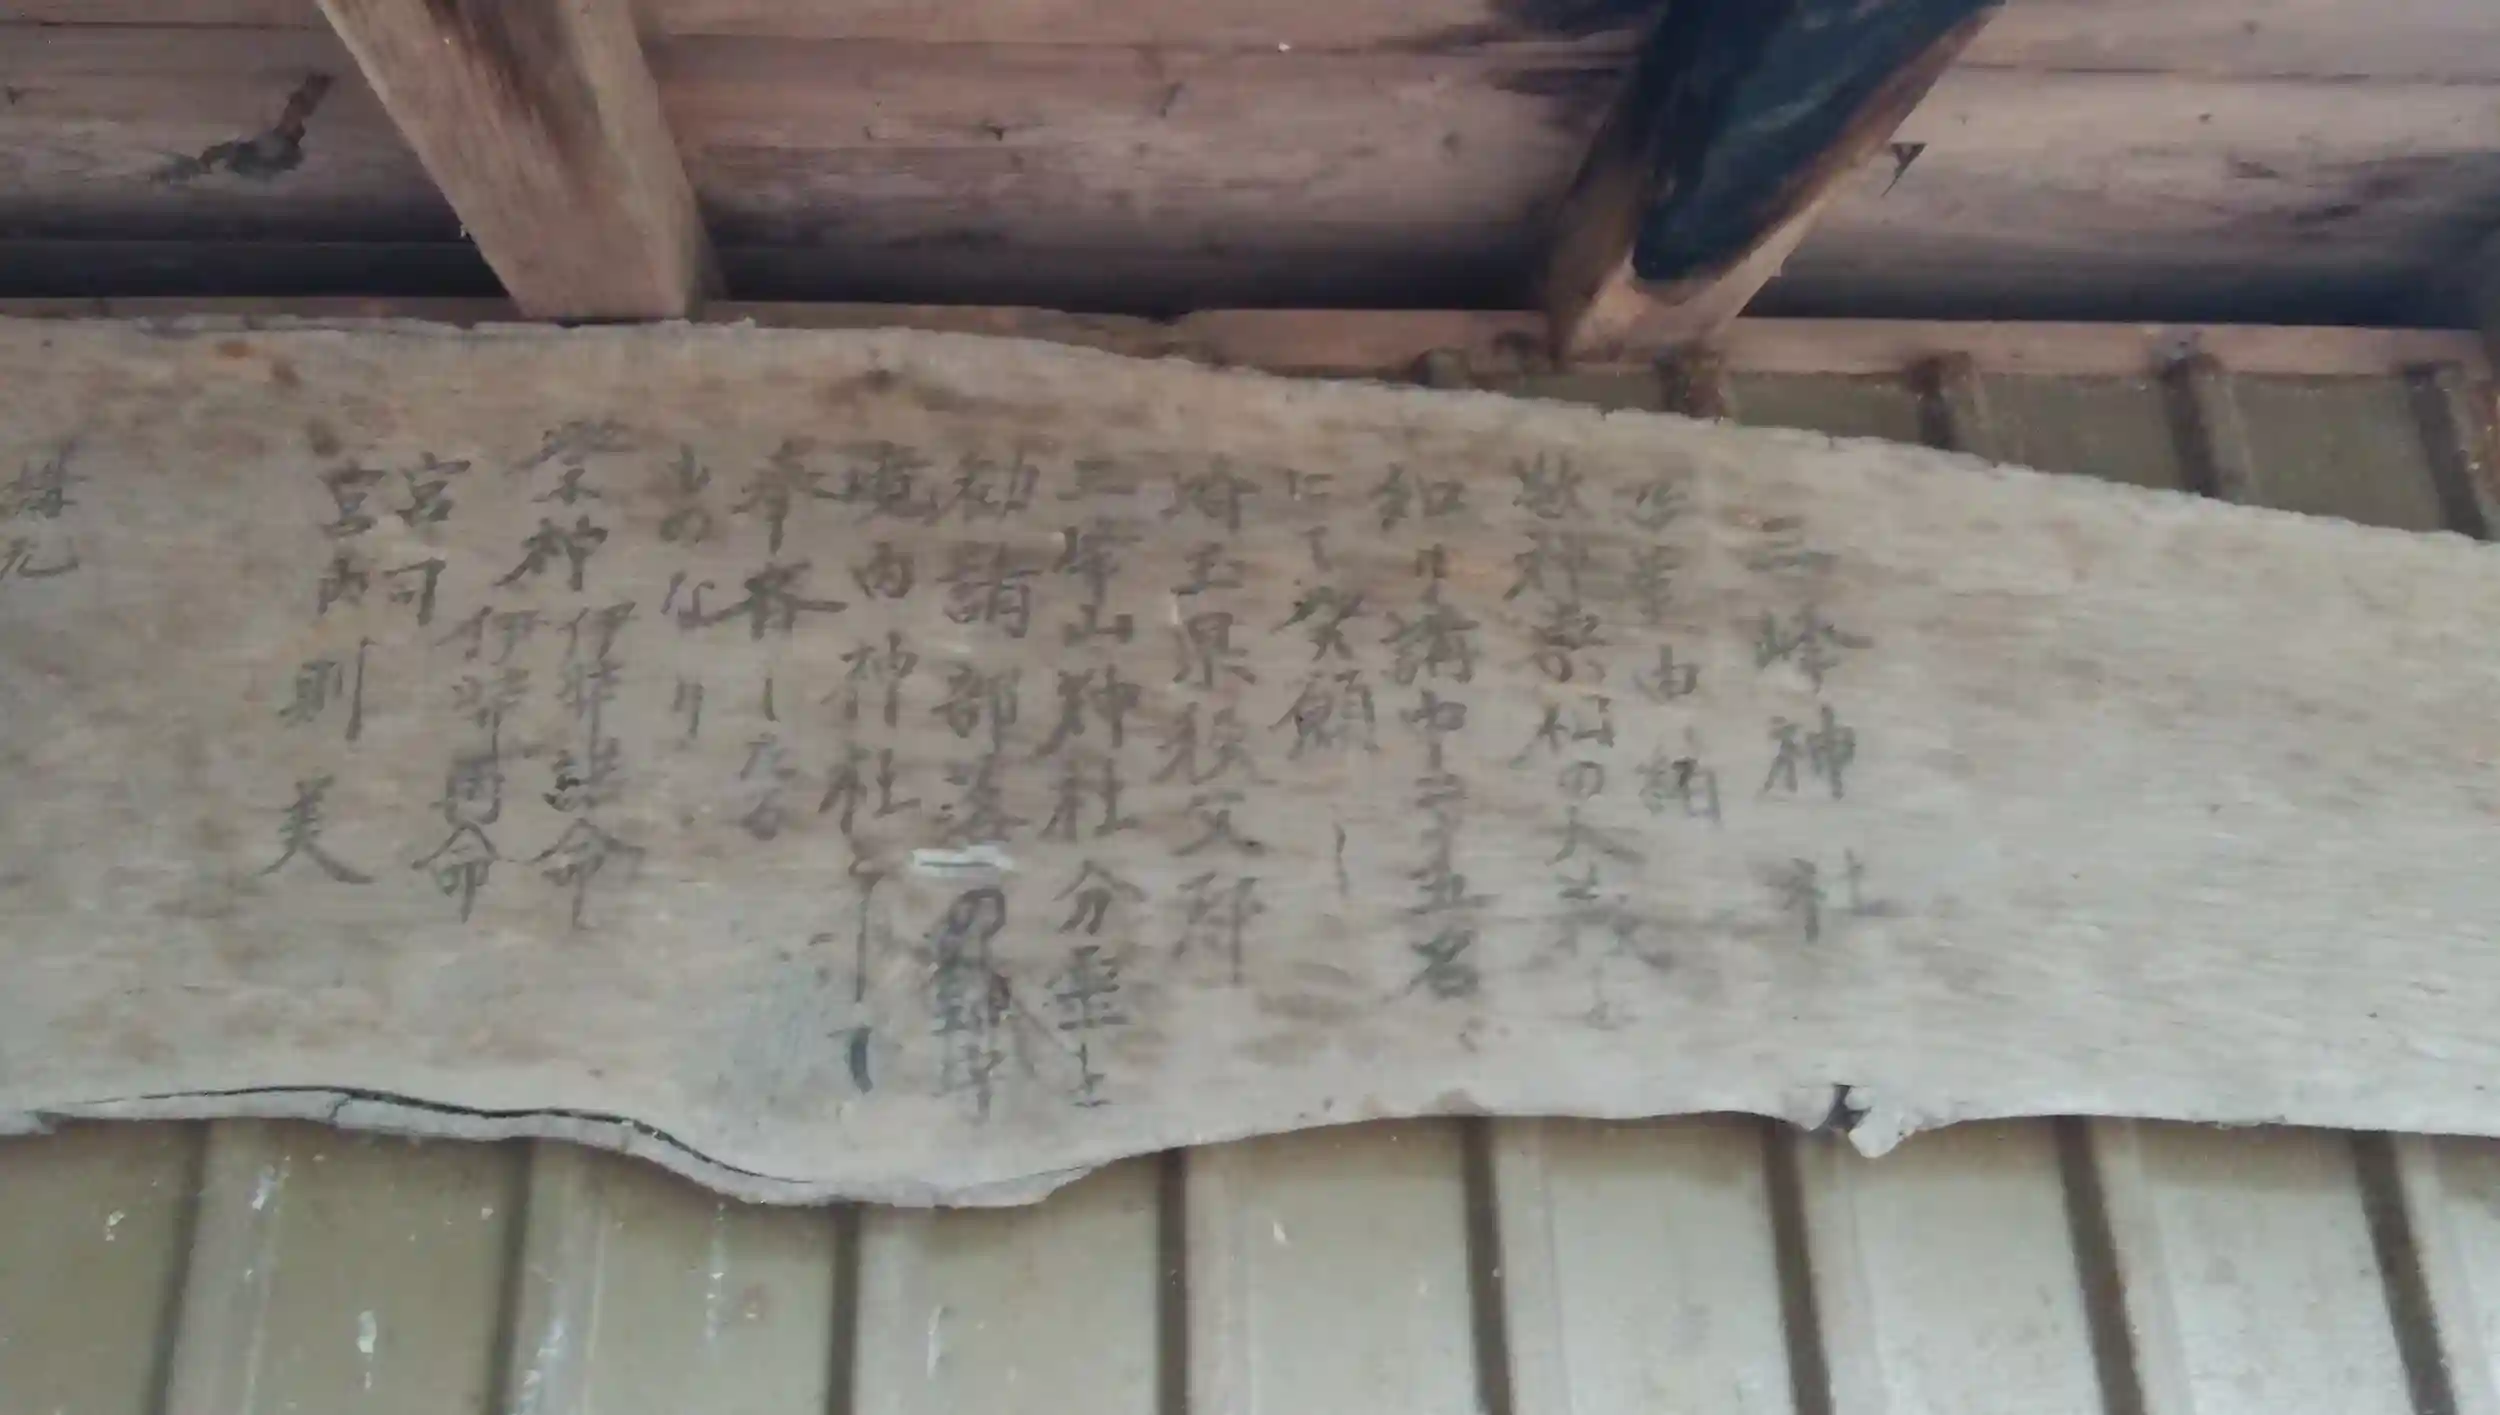 三峰神社
由緒
敬神崇仏の大義
和り講中二十五名
にて発願し
埼玉県秩父郡
三峰山神社分霊を
勧請部落一の
境内神社として
奉斎したる
ものなり
祭神 伊弉諾命
伊弉冉命
宮司
宮内則美